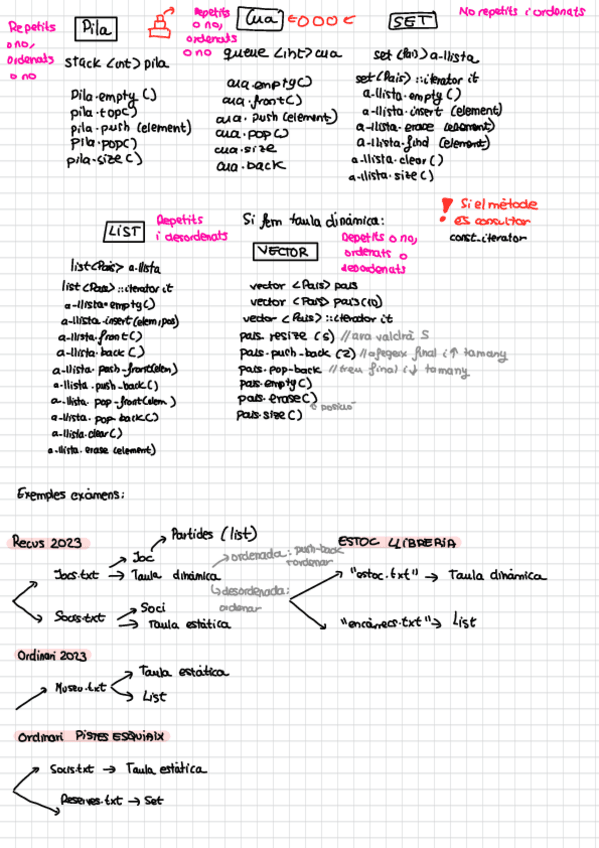 Pila
Repetits
o no,
ordenats
o no
stack <int> pila
Pila.empty()
pila.top()
pila.push (element)
Pila.pop()
pila.size()
Cua
Repetits
o no,
ordenats
o no
queue <int> cua
cua.empty()
cua.front()
cua.push (element)
cua.pop()
cua.size
cua.back
SET
No repetits i ordenats
set <País> a-llista
set <País> ::iterator it
a-llista.empty()
a-llista.insert (element)
a-llista.erase (element)
a-llista.find (element)
a-llista.clear()
a-llista.size()
! Si el mètode
es consultor
const-iterator
LIST
Repetits
i desordenats
list <País> a-llista
list <País> ::iterator it
a-llista.empty()
a-llista.insert (elem, pos)
a-llista.front()
a-llista.back()
a-llista.push-front(elem)
a-llista.push-back()
a-llista.pop-front(elem)
a-llista.pop-back()
a-llista.clear()
a-llista.erase (element)
Si fem taula dinàmica:
VECTOR
Repetits o no,
ordenats o
desordenats
vector <País> pais
vector <País> pais(10)
vector <País> ::iterator it
pais.resize (5) //ara valdrà 5
pais.push-back (2) //afegeix final i ↑ tamany
pais.pop-back //treu final i ↓ tamany
pais.empty()
pais.erase()
posició
pais.size()
Exemples exàmens:
Recus 2023
Jocs.txt → Taula dinàmica
Joc
Partides (list)
ordenada: push-back
+ordenar
desordenada:
ordenar
Socis.txt
Soci
Taula estàtica
ESTOC LLIBRERIA
"estoc.txt" → Taula dinàmica
"encàrrecs.txt" → List
Ordinari 2023
Museu.txt
Taula estàtica
List
Ordinari PISTES ESQUIAIX
Socis.txt → Taula estàtica
Reserves.txt → Set